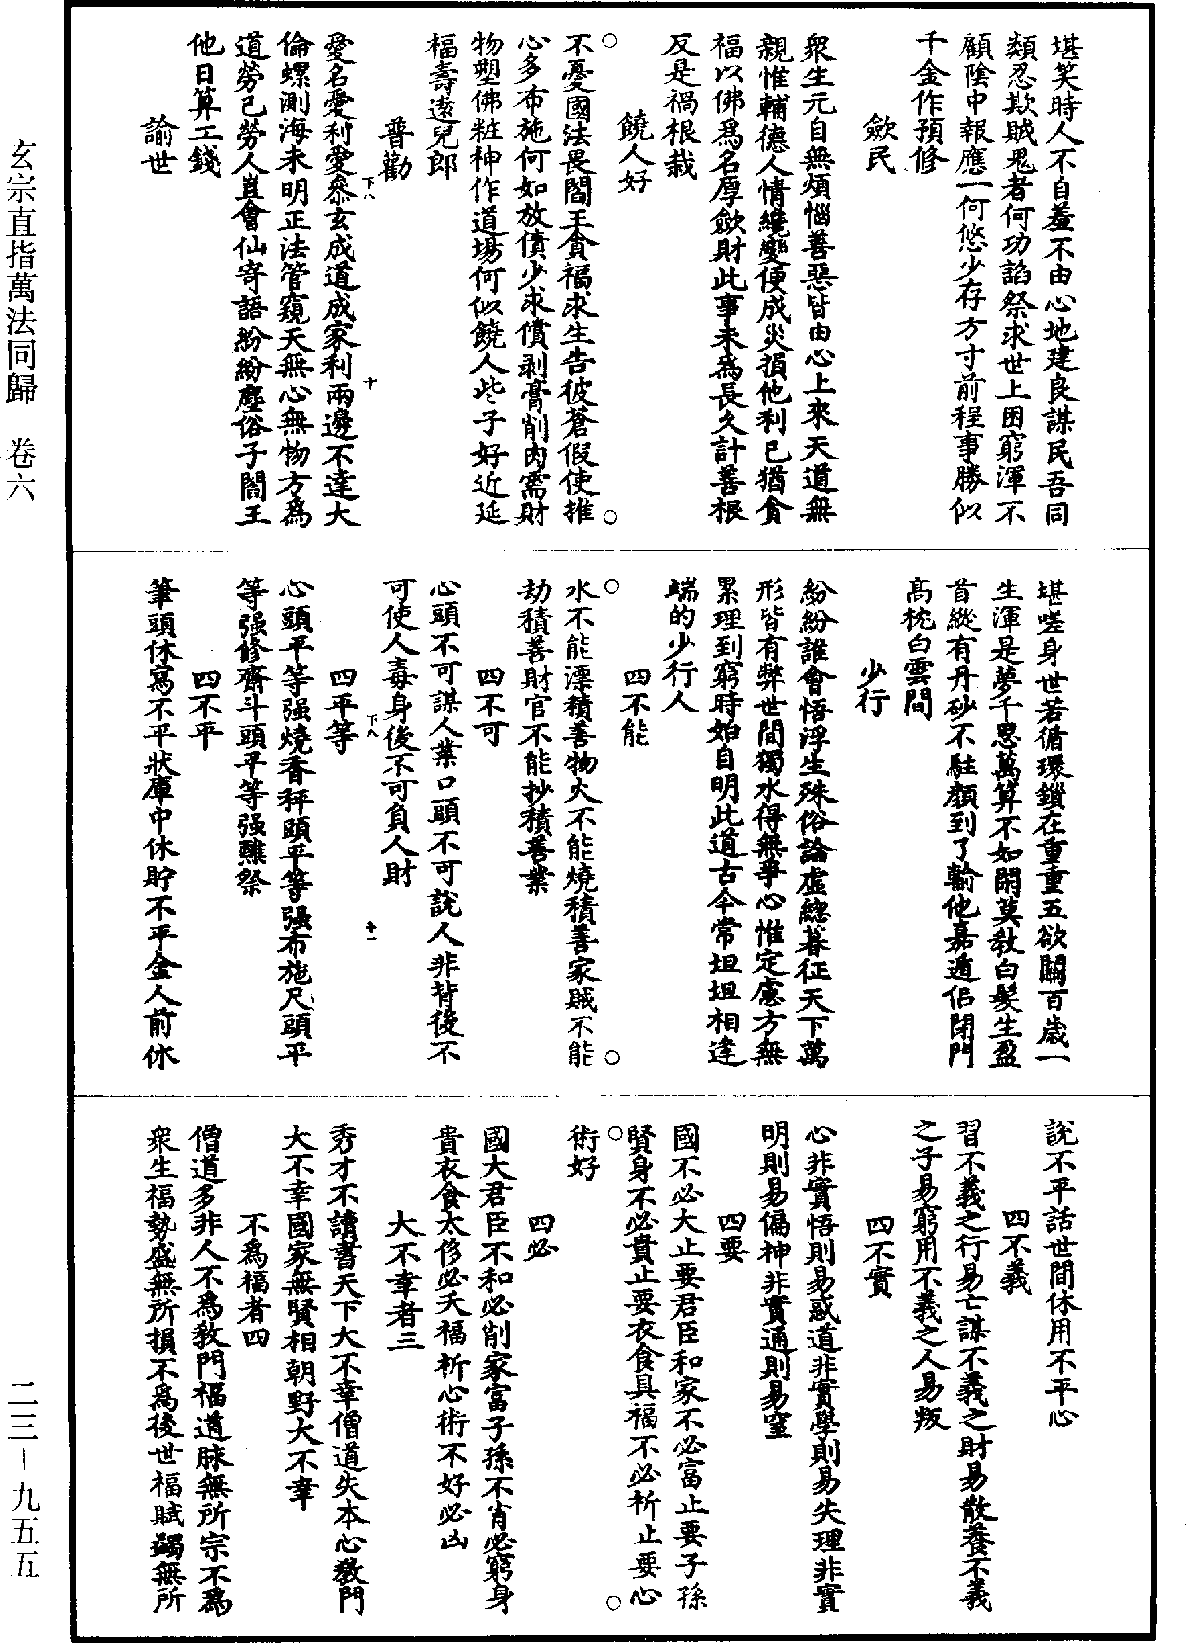 堪笑時人不自羞不由心地建良謀民吾同
類忍欺賊鬼者何功諂祭求世上困窮渾不
顧陰中報應一何悠少存方寸前程事勝似
千金作預修
歛民
衆生元自無煩惱善惡皆由心上來天道無
親惟輔德人情纔變便成災損他利己猶貪
福以佛爲名厚歛財此事未爲長久計善根
反是禍根栽
饒人好
不憂國法畏閻王貪福求生告彼蒼假使推
心多布施何如放債少求償剥膏削肉需財
物塑佛粧神作道場何似饒人些子好近延
福壽遠兒郎
普勸
下八
十
愛名愛利愛叅玄成道成家利兩邊不達大
倫螺測海未明正法管窺天無心無物方爲
道勞已勞人豈會仙寄語紛紛塵俗子閻王
他日算工錢
諭世
堪嗟身世若循環鎖在重重五欲關百歲一
生渾是夢千思萬算不如閑莫敎白髮生盈
首縱有丹砂不駐顏到了輸他嘉遁侣閉門
高枕白雲間
少行
紛紛誰會悟浮生殊俗論虛總暮征天下萬
形皆有弊世間獨水得無爭心惟定慮方無
累理到窮時始自明此道古今常坦坦相逢
端的少行人
四不能
水不能漂積善物火不能燒積善家賊不能
劫積善財官不能抄積善業
四不可
心頭不可謀人業口頭不可說人非背後不
可使人毒身後不可負人財
下八
十一
四平等
心頭平等强燒香秤頭平等强布施尺頭平
等强修齋斗頭平等强醮祭
四不平
筆頭休寫不平狀庫中休貯不平金人前休
說不平話世間休用不平心
四不義
習不義之行易亡謀不義之財易散養不義
之子易窮用不義之人易叛
四不實
心非實悟則易惑道非實學則易失理非實
明則易偏神非實通則易窒
四要
國不必大止要君臣和家不必富止要子孫
賢身不必貴止要衣食具福不必祈止要心
術好
四必
國大君臣不和必削家富子孫不肖必窮身
貴衣食太侈必夭福祈心術不好必凶
大不幸者三
秀才不讀書天下大不幸僧道失本心敎門
大不幸國家無賢相朝野大不幸
不爲福者四
僧道多非人不爲敎門福道脉無所宗不爲
衆生福勢盛無所損不爲後世福賦蠲無所
玄宗直指萬法同歸 卷六
二三－九五五